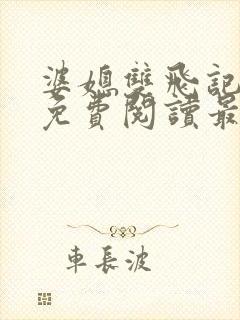 婆媳雙飛記
免費閱讀最
車長波